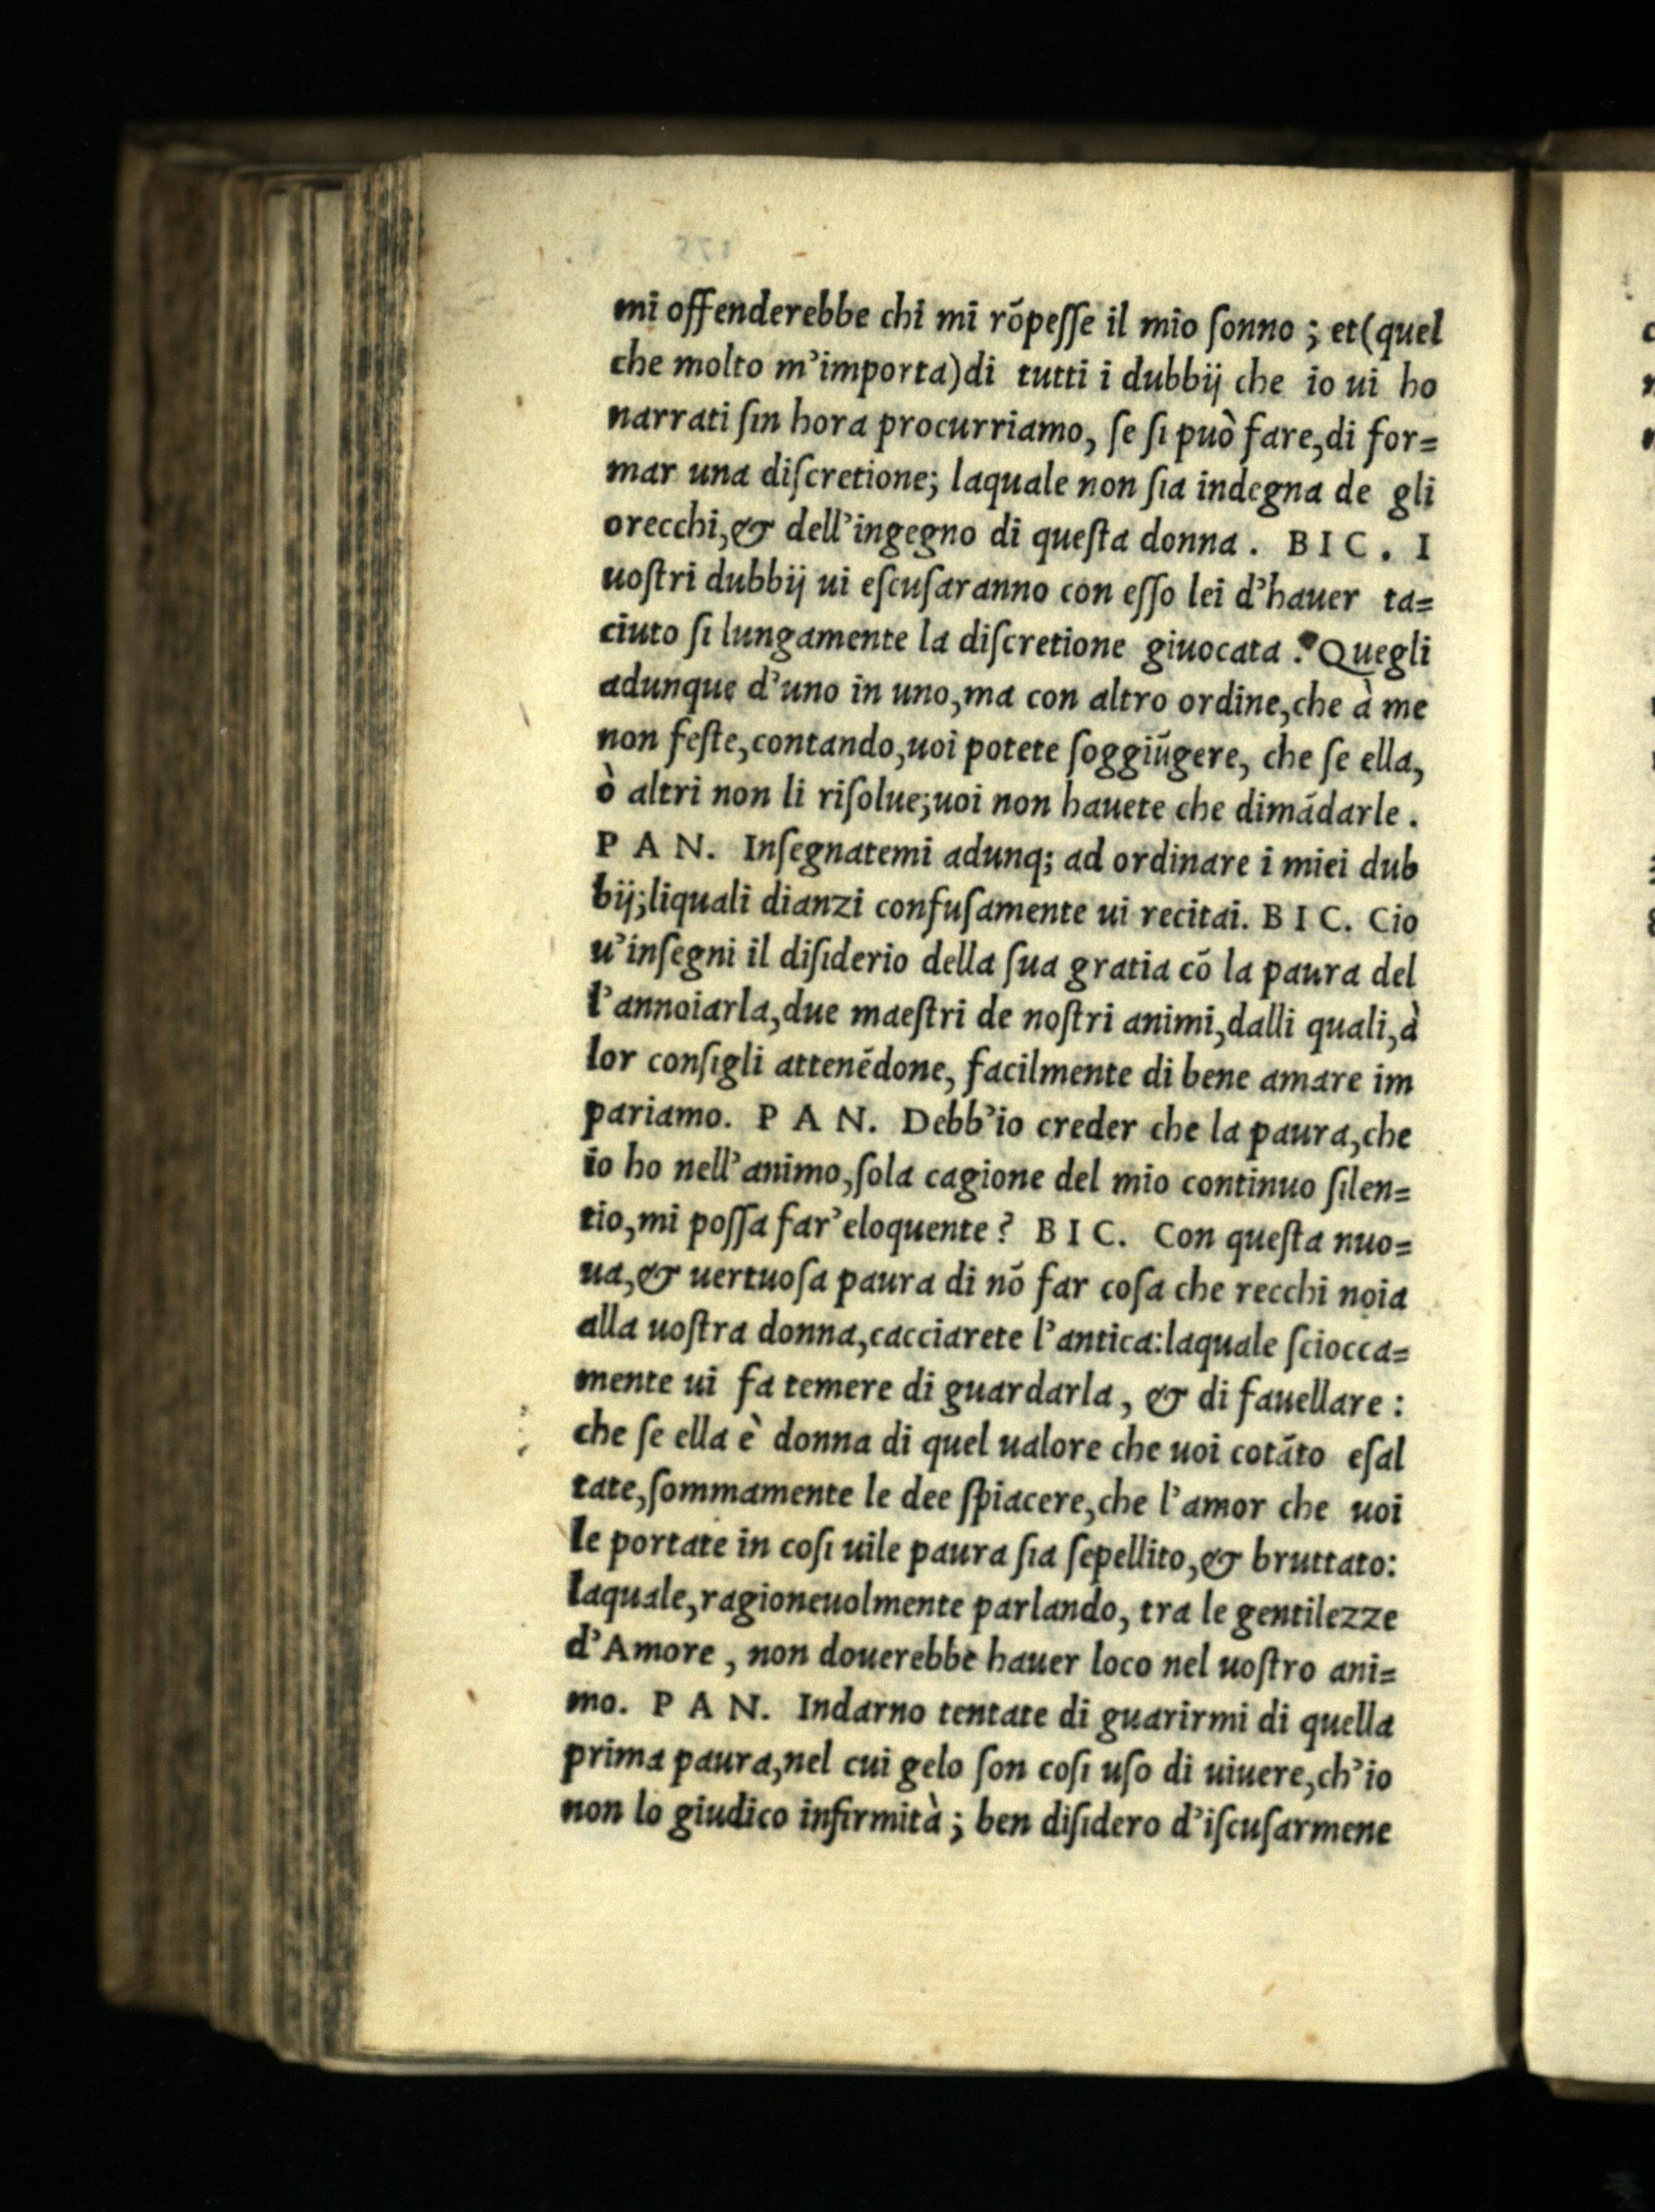 mi offenderebbe chi mi rõpeſſe il mio ſonno ; et(quel
che molto m'importa)di tutti i dubbij che io ui ho
narrati ſin hora procurriamo, ſe ſi può fare,di for=
mar una diſcretione; laquale non ſia indegna de gli
orecchi,& dell'ingegno di queſta donna . BIC. I
uoſtri dubbij ui eſcuſaranno con eſſo lei d'hauer ta=
ciuto ſi lungamente la diſcretione giuocata . Quegli
adunque d'uno in uno,ma con altro ordine,che à me
non feſte,contando,uoi potete ſoggiũgere, che ſe ella,
ò altri non li riſolue;uoi non hauete che dimãdarle .
PAN. Inſegnatemi adunq; ad ordinare i miei dub
bij;liquali dianzi confuſamente ui recitai. BIC. Cio
u'inſegni il diſiderio della ſua gratia cõ la paura del
l'annoiarla,due maeſtri de noſtri animi,dalli quali,à
lor conſigli attenẽdone, facilmente di bene amare im
pariamo. PAN. Debb'io creder che la paura,che
io ho nell'animo,ſola cagione del mio continuo ſilen=
tio,mi poſſa far'eloquente? BIC. Con queſta nuo=
ua,& uertuoſa paura di nõ far coſa che recchi noia
alla uoſtra donna,cacciarete l'antica:laquale ſciocca=
mente ui fa temere di guardarla, & di fauellare :
che ſe ella è donna di quel ualore che uoi cotãto eſal
tate,ſommamente le dee ſpiacere,che l'amor che uoi
le portate in coſi uile paura ſia ſepellito,& bruttato:
laquale,ragioneuolmente parlando, tra le gentilezze
d'Amore , non douerebbe hauer loco nel uoſtro ani=
mo. PAN. Indarno tentate di guarirmi di quella
prima paura,nel cui gelo ſon coſi uſo di uiuere,ch'io
non lo giudico infirmità ; ben diſidero d'iſcuſarmene